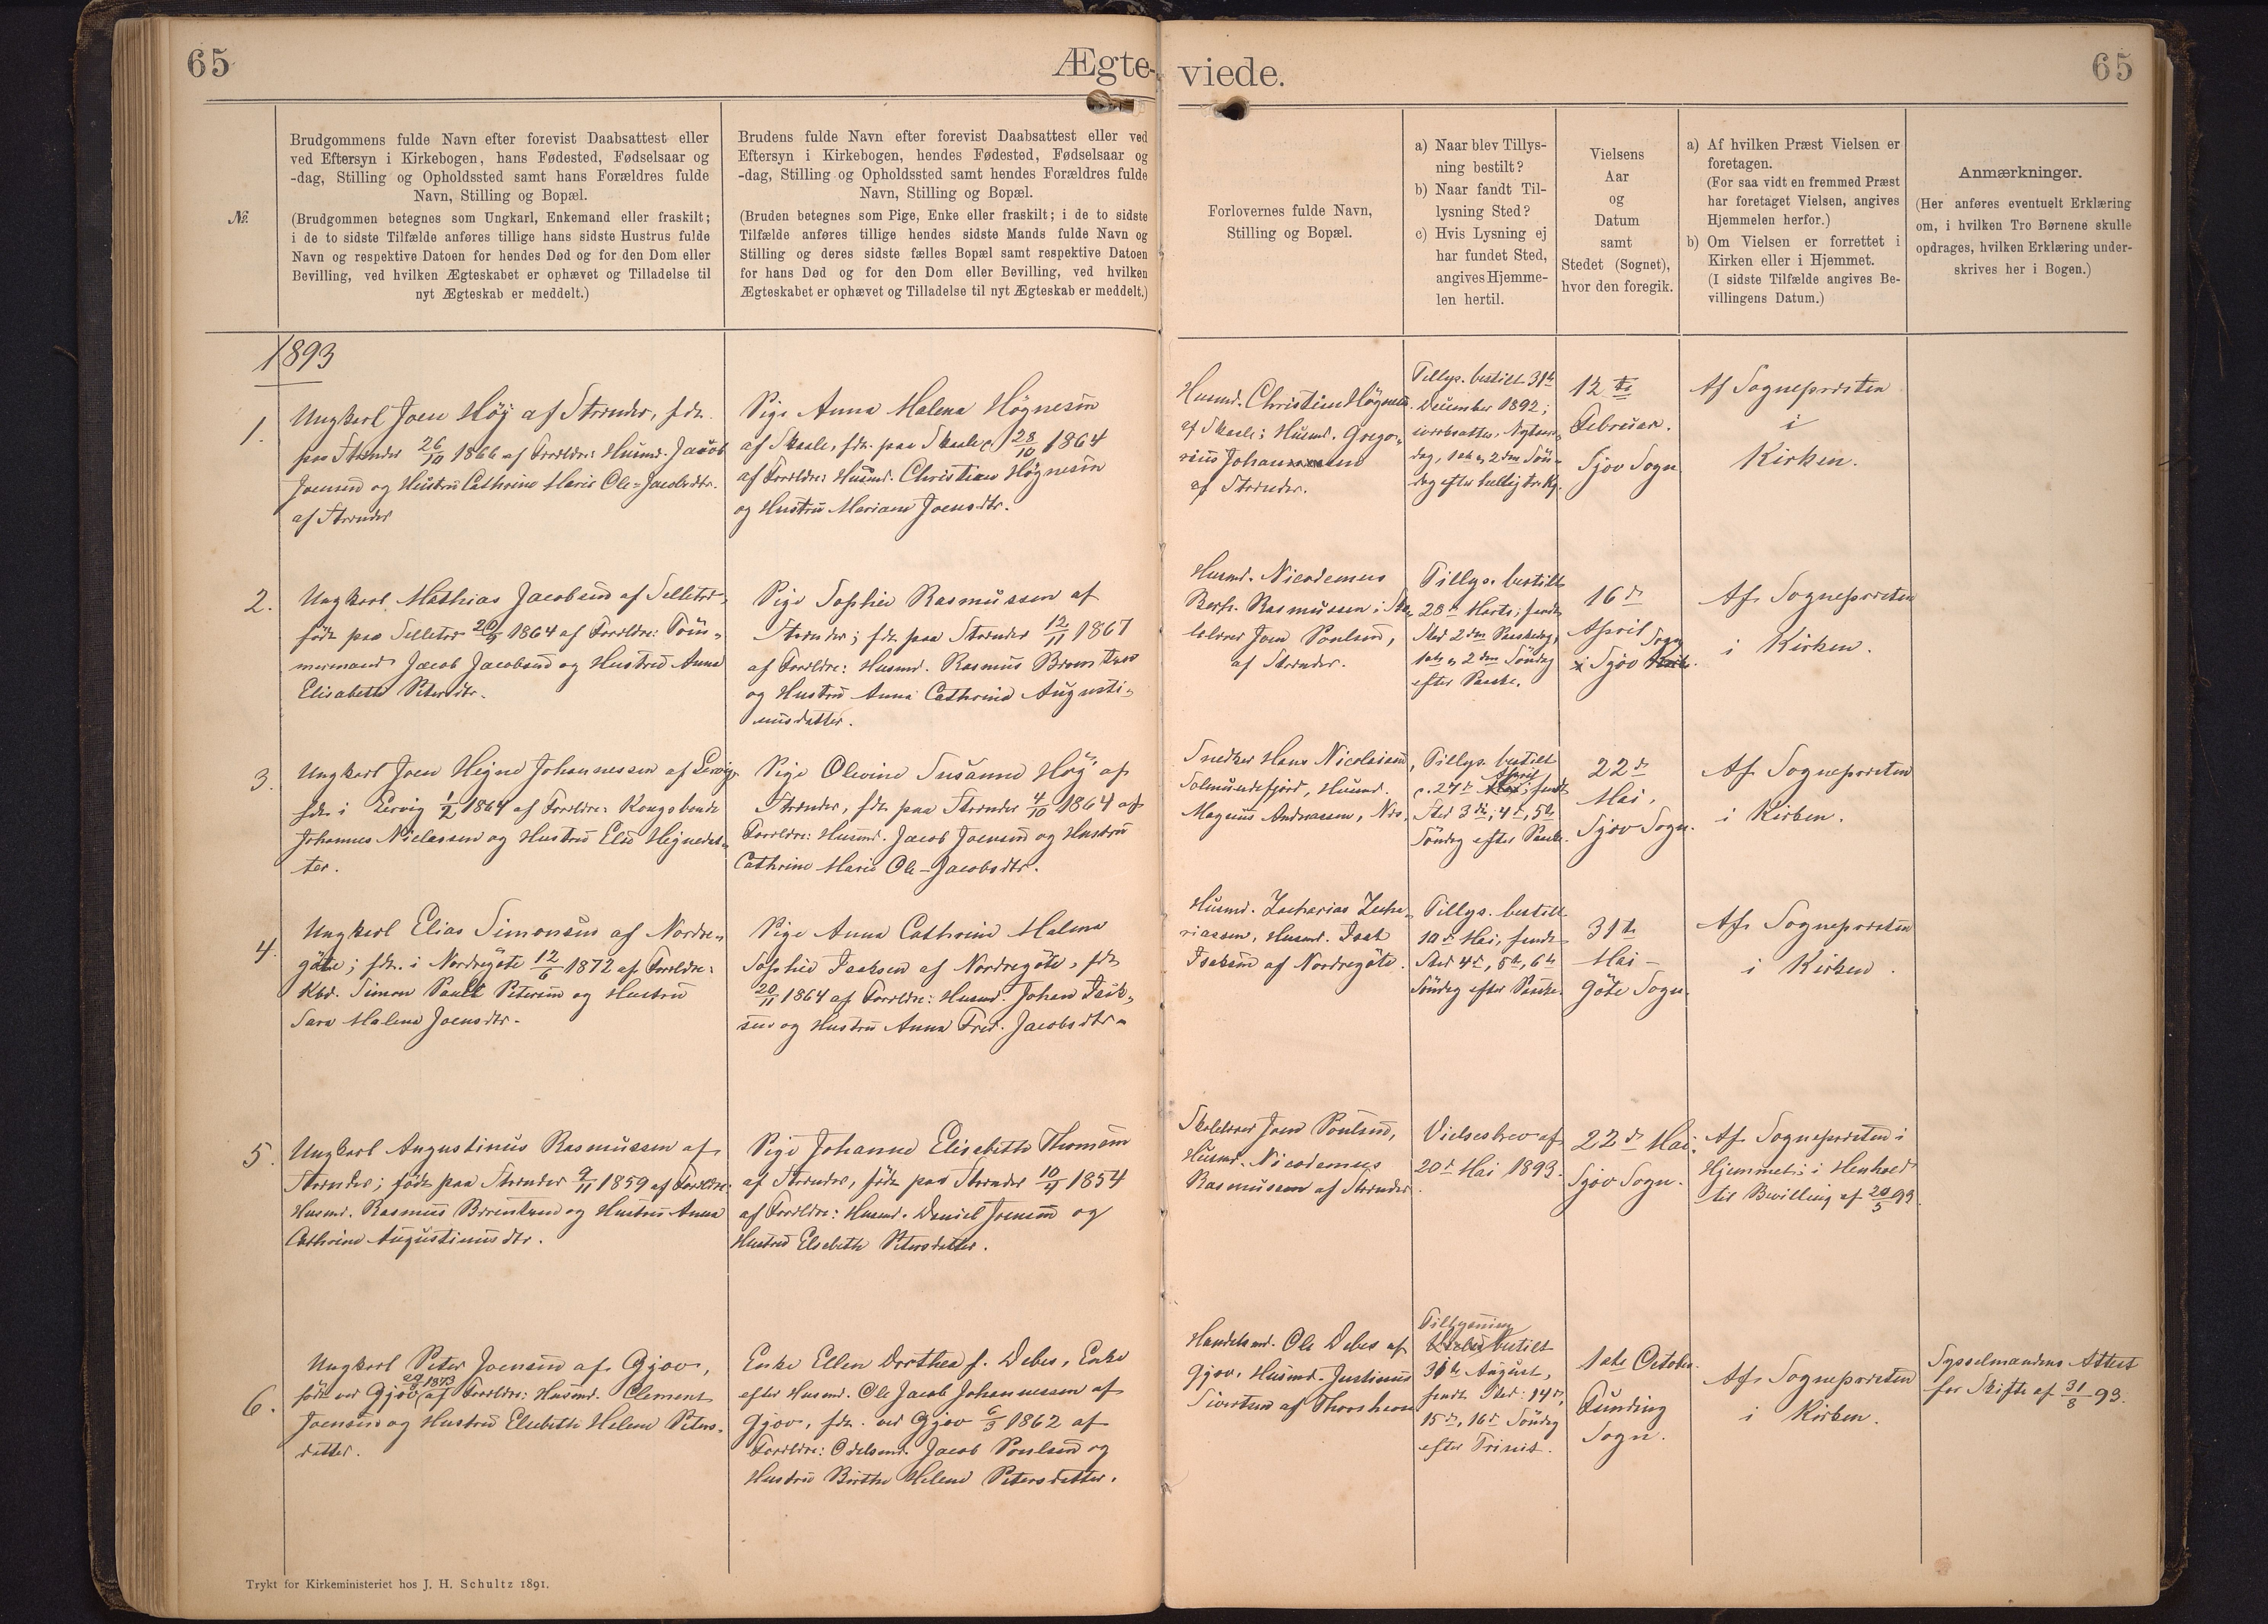 65
Ægte-
viede.
65
№
Brudgommens fulde Navn efter forevist Daabsattest eller
ved Eftersyn i Kirkebogen, hans Fødested, Fødselsaar og
-dag, Stilling og Opholdssted samt hans Forældres fulde
Navn, Stilling og Bopæl.
(Brudgommen betegnes som Ungkarl, Enkemand eller fraskilt;
i de to sidste Tilfælde anføres tillige hans sidste Hustrus fulde
Navn og respektive Datoen for hendes Død og for den Dom eller
Bevilling, ved hvilken Ægteskabet er ophævet og Tilladelse til
nyt Ægteskab er meddelt.)
Brudens fulde Navn efter forevist Daabsattest eller ved
Eftersyn i Kirkebogen, hendes Fødested, Fødselsaar og
-dag, Stilling og Opholdssted samt hendes Forældres fulde
Navn, Stilling og Bopæl.
(Bruden betegnes som Pige, Enke eller fraskilt; i de to sidste
Tilfælde anføres tillige hendes sidste Mands fulde Navn og
Stilling og deres sidste fælles Bopæl samt respektive Datoen
for hans Død og for den Dom eller Bevilling, ved hvilken
Ægteskabet er ophævet og Tilladelse til nyt Ægteskab er meddelt.)
Forlovernes fulde Navn,
Stilling og Bopæl.
a) Naar blev Tillys-
ning bestilt?
b) Naar fandt Til-
lysning Sted?
c) Hvis Lysning ej
har fundet Sted,
angives Hjemme-
len hertil.
Vielsens
Aar
og
Datum
samt
Stedet (Sognet),
hvor den foregik.
a) Af hvilken Præst Vielsen er
foretagen.
(For saa vidt en fremmed Præst
har foretaget Vielsen, angives
Hjemmelen herfor.)
b) Om Vielsen er forrettet i
Kirken eller i Hjemmet.
(I sidste Tilfælde angives Be-
villingens Datum.)
Anmærkninger.
(Her anføres eventuelt Erklæring
om, i hvilken Tro Børnene skulle
opdrages, hvilken Erklæring under-
skrives her i Bogen.)
1893
1.
Ungkarl Joen Höj af Strender, fdt.
paa Strender 26/10 1866 af Forældre: Husmd. Jacob
Joensen og Hustru Cathrine Marie Ole-Jacobsdtr.
af Strender
Pige Anna Malena Högnesen
af Skaale, fdt. paa Skaale 28/10 1864
af Forældre: Husmd. Christian Högnesen
og Hustru Mariane Joensdtr.
Husmd. Christian Högnesen
af Skaale; Husmd. Grego-
rius Johannesen
af Strender.
Tillys. bestilt 31te
December 1892;
Nytaars-
dag, 1ste, 2den Sön-
dag efter hellig tr. Kg.
12te
Februar.
Sjov Sogn
Af Sognepræsten
i
Kirken.
2.
Ungkarl Mathias Jacobsen af Selletræ,
födt paa Selletræ 20/5 1864 af Forældre: Töm-
mermand Jacob Jacobsen og Hustru Anna
Elisabeth Petersdtr.
Pige Sophie Rasmussen af
Strender; fdt. paa Strender 12/11 1867
af Forældre: Husmd. Rasmus
og Hustru Anna Cathrine Augusti-
nusdatter.
Husmd. Nicodemus
Rasmussen i
lelærer Joen Poulsen,
af Strender.
Tillys. bestilt
28de Marts; fandt
Sted 2den Paaskedag,
1ste, 2den Söndag
efter Paaske.
16de
April
i Sjov Sogn
Af Sognepræsten
i Kirken.
3.
Ungkarl Joen Hejne Johannessen af Lervig,
fdt. i Lervig 1/2 1864 af Forældre: Kongsbonde
Johannes Nielassen og Hustru Else Hejnedat-
ter.
Pige Olevine Susanne Höj af
Strender, fdt. paa Strender 4/10 1864 af
Forældre: Husmd. Jacob Joensen og Hustru
Cathrine Marie Ole-Jacobsdtr.
Snedker Hans Nicolaisen,
Solmundefjord, Husmd.
Magnus Andreassen, Næs.
Tillys. bestilt
c. 27de April; fandt
Sted 3die, 4de, 5te
Söndag efter Paaske.
22de
Mai,
Sjov Sogn.
Af Sognepræsten
i Kirken.
4.
Ungkarl Elias Simonsen af Nordre-
göte; fdt. i Nordregöte 12/6 1872 af Forældre:
Kbd. Simon Paull Petersen og Hustru
Sara Malene Joensdtr.
Pige Anna Cathrine Malena
Sophie Isaksen af Nordregöte, fdt.
20/11 1864 af Forældre: Husmd. Johan Isak-
sen og Hustru Anna Fred. Jacobsdtr.
Husmd. Zacharias Zacha-
riassen, Husmd. Isak
Isaksen af Nordregöte.
Tillys. bestilt
10de Mai, fandt
Sted 4de, 5te, 6te
Söndag efter Paaske.
31te
Mai
Göte Sogn.
Af Sognepræsten
i Kirken.
5.
Ungkarl Augustinus Rasmussen af
Strender; födt paa Strender 9/11 1859 af Forældre
Husmd. Rasmus og Hustru Anna
Cathrine Augustinusdtr.
Pige Johanne Elisabeth Thomsen
af Strender, födt paa Strender 1854
af Forældre: Husmd. Daniel Joensen og
Hustru Elsebeth Petersdatter.
Skolelærer Joen Poulsen,
Husmd. Nicodemus
Rasmussen af Strender.
Vielsesbrev af
20de Mai 1893.
22de Mai.
Sjov Sogn.
Af Sognepræsten i
Hjemmet i Henhold
til Bevilling af 20/5 93.
6.
Ungkarl Peter Joensen af Gjov,
födt ved Gjov 1873 af Forældre: Husmd. Clement
Joensen og Hustru Elsebeth Helene Peters-
datter.
Enke Ellen Dorthea f. Debes, Enke
efter Husmd. Ole Jacob Johannessen af
Gjov, fdt. ved Gjov 6/3 1862 af
Forældre: Odelsmd. Jacob Poulsen og
Hustru Birthe Helene Petersdatter.
Handelsmd. Ole Debes af
Gjov, Husmd. Justinus
Sivertsen af Thorshavn
Tillysning
bestilt
31te August,
fandt Sted: 14de,
15de, 16de Söndag
efter Trinit.
1ste October.
Funding
Sogn.
Af Sognepræsten
i Kirken.
Sysselmandens Attest
for Skifte af 31/8 93.
Trykt for Kirkeministeriet hos J. H. Schultz 1891.